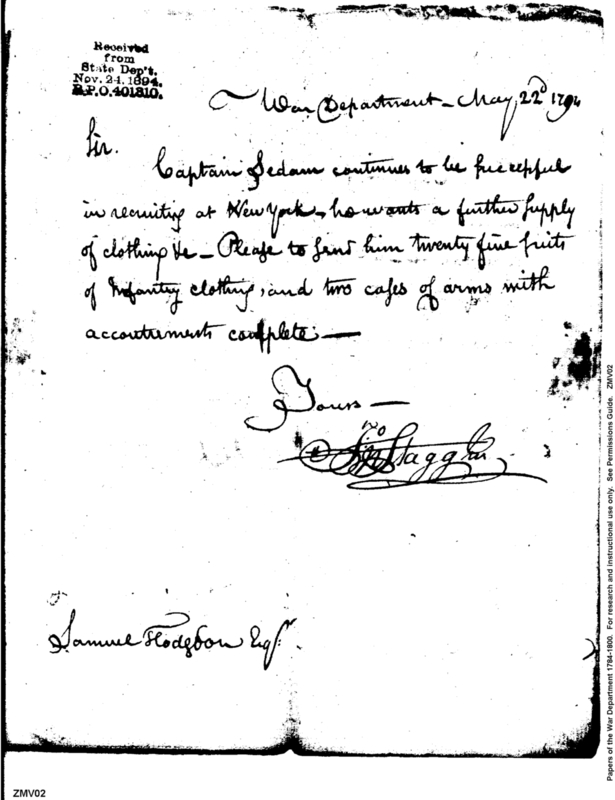 Received
from
State Dep't.
Nov. 24. 1894.
R.P.O. 401310.
War Department - May 22d 1794
Sir.
Captain Sedam continues to be successful
in recruiting at New York - he wants a further supply
of clothing &c - Please to send him twenty five suits
of Infantry clothing, and two cases of arms with
accoutrements complete. -
Yours -
Jno Stagg Jr
Samuel Hodgdon Esqr.
ZMV02
Papers of the War Department 1784-1800. For research and instructional use only. See Permissions Guide. ZMV02